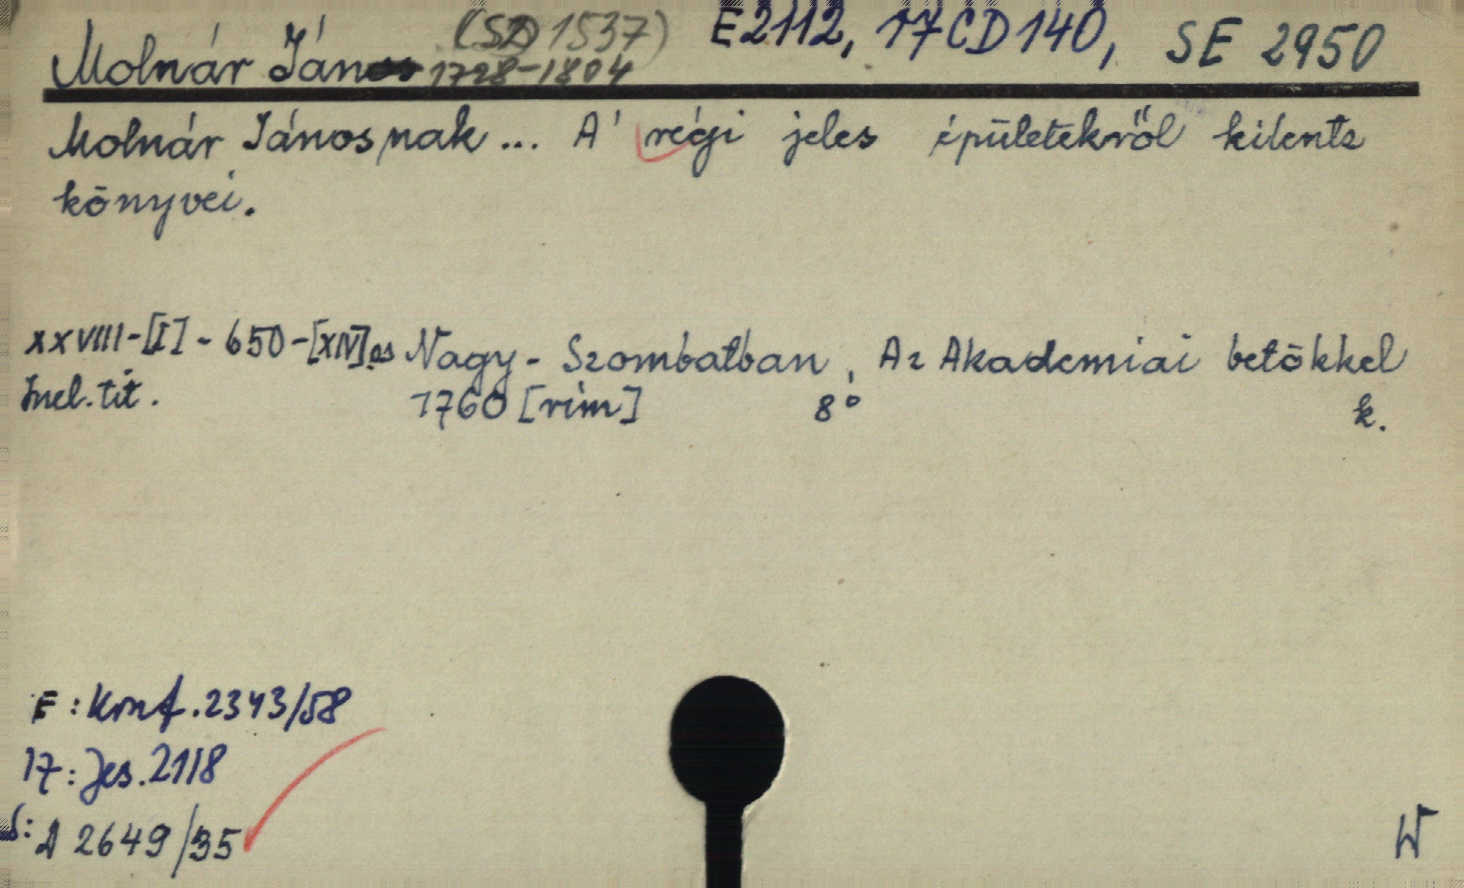 (SD 1537) E2112, 17CD140, SE 2950
Molnár János 1728-1804
Molnár Jánosnak... A' régi jeles épületekről kilents
könyvei.
XXVIII-[I]-650-[XIV]as Nagy-Szombatban, Az Akademiai betőkkel
Mel. tit. 1760 [rim] 8° k.
E: Kmf. 2343/58
17: Jes. 2118
S: A 2649/35
W